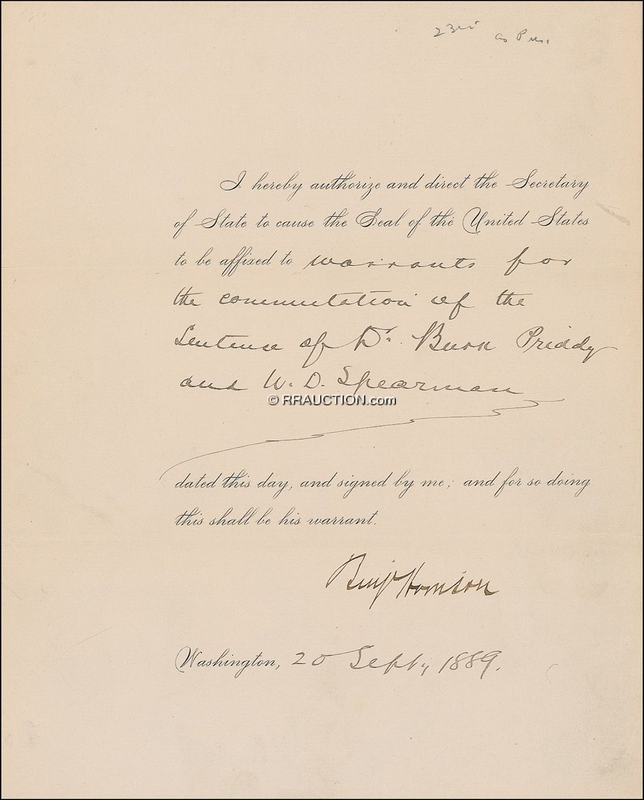 23rd as Pres
I hereby authorize and direct the Secretary
of State to cause the Seal of the United States
to be affixed to warrants for
the commutation of the
Sentense of Dr. Burk Priddy
and W. D. Spearman
© RRAUCTION.com
dated this day, and signed by me; and for so doing
this shall be his warrant.
Benj Harrison
Washington, 20 Sept, 1889.